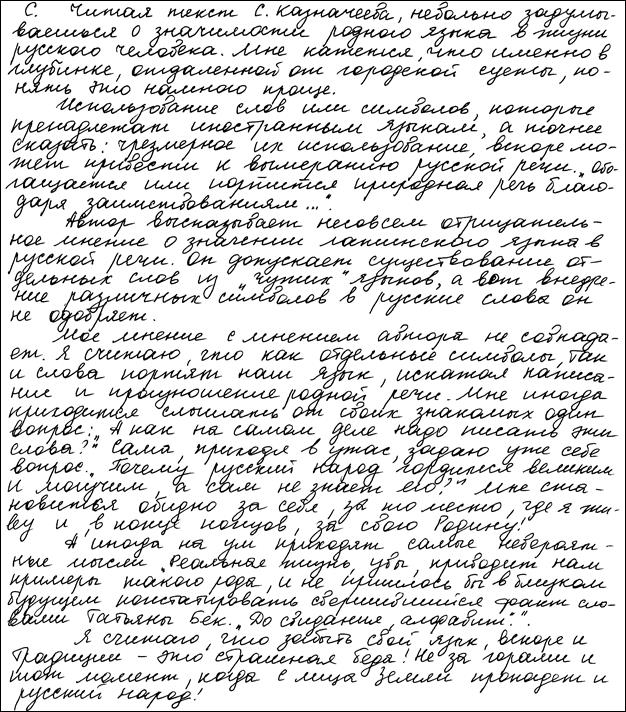 С. Читая текст С. Казначеева, невольно задумы-
ваешься о значимости родного языка в жизни
русского человека. Мне кажется, что именно в
глубинке, отдаленной от городской суеты, по-
нять это намного проще.
Использование слов или символов, которые
пренадлежат иностранным языкам, а точнее
сказать: чрезмерное их использование, вскоре мо-
жет привести к вымеранию русской речи. „Обо-
гащается или портится природная речь благо-
даря заимствованиям..."
Автор высказывает несовсем отрицатель-
ное мнение о значении латинского языка в
русской речи. Он допускает существование от-
дельных слов из „чужих" языков, а вот внедре-
ние различных символов в русские слова он
не одобряет.
Мое мнение с мнением автора не совпада-
ет. Я считаю, что как отдельные символы, так
и слова портят наш язык, искажая написа-
ние и произношение родной речи. Мне иногда
приходится слышать от своих знакомых один
вопрос: „А как на самом деле надо писать эти
слова?" Сама, приходя в ужас, задаю уже себе
вопрос: „Почему русский народ гордится великим
и могучим, а сам не знает его?" Мне ста-
новиться обидно за себя, за то место, где я жи-
ву и, в конце концов, за свою Родину!
А иногда на ум приходят самые невероят-
ные мысли „Реальная жизнь, увы, приводит нам
примеры такого рода, и не пришлось бы в близком
будущем констатировать свершившийся факт сло-
вами Татьяны Бек: „До свидания, алфавит".
Я считаю, что забыть свой язык, вскоре и
традиции – это страшная беда! Не за горами и
тот момент, когда с лица Земли пропадет и
русский народ!